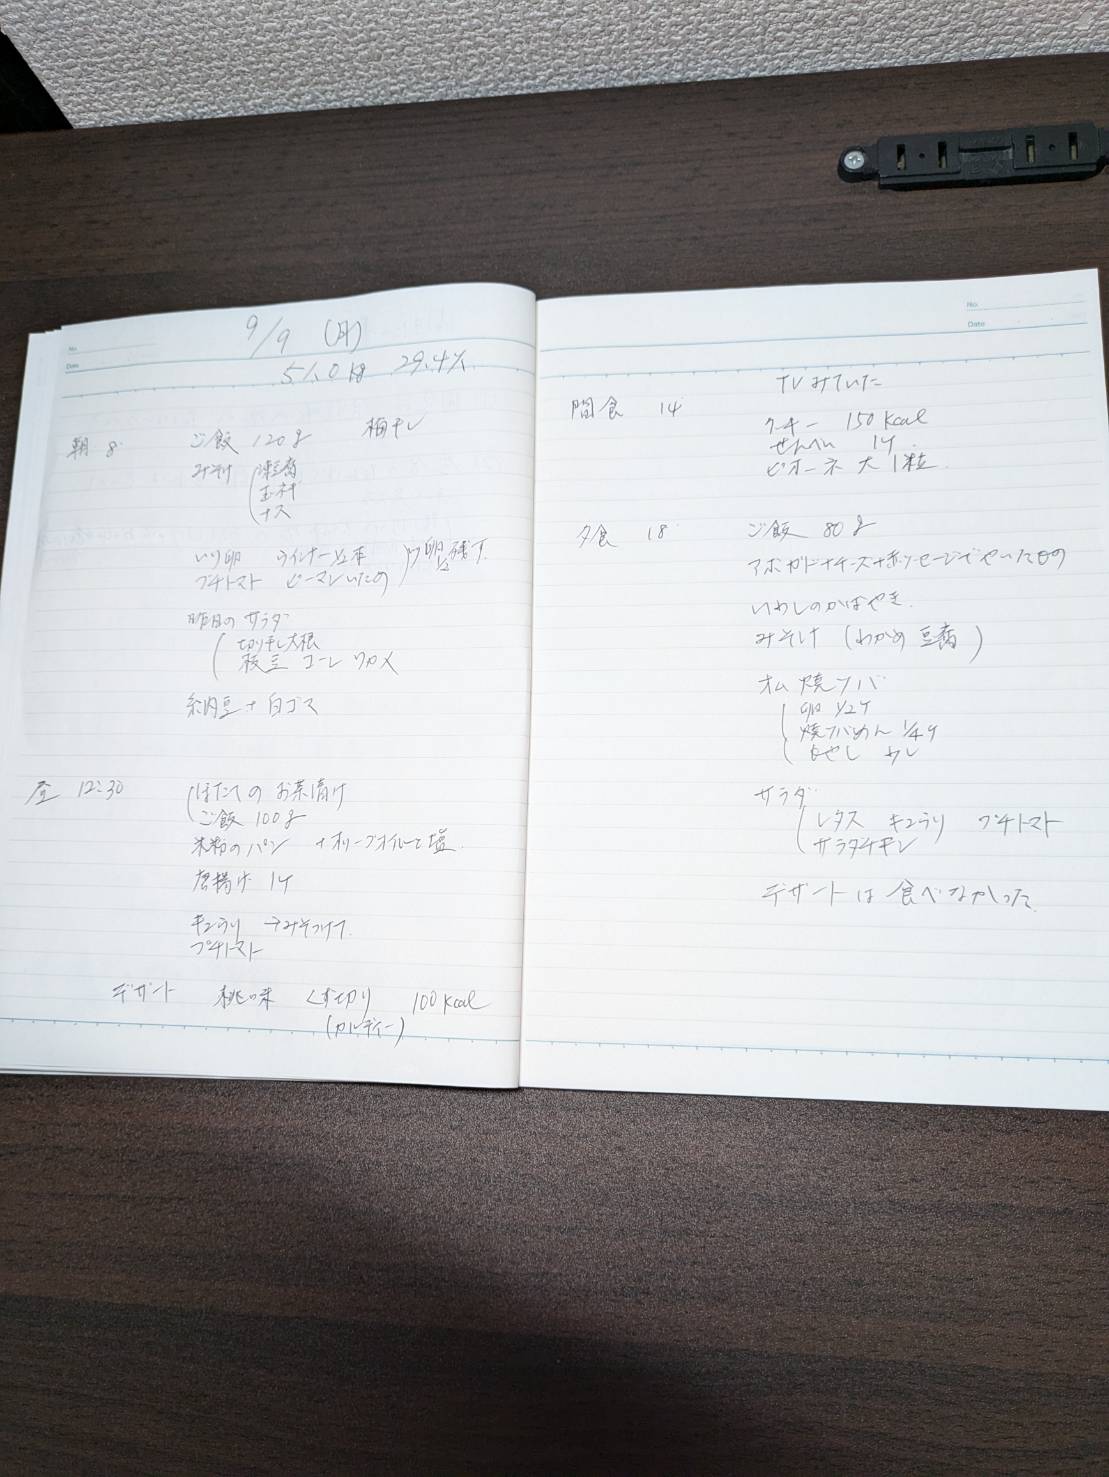 No.
Date
9/9 (月)
51.0kg 29.4%
朝 8 ご飯 120g 梅干し
みそ汁 凍豆腐
玉ネギ
ナス
いり卵 ウインナー1/2本
プチトマト ピーマンいため 卵1/2残す
昨日のサラダ
切り干し大根
枝豆 コーン ワカメ
納豆+白ゴマ
昼 12:30 ほたてのお茶漬け
ご飯 100g
米粉のパン +オリーブオイルと塩
唐揚げ 1ケ
キュウリ →みそつけて
プチトマト
デザート 桃の味 くず切り 100kcal
(カルディー)
No.
Date
TVみていた
間食 14 クッキー 150kcal
せんべい 1ケ
ピオーネ 大1粒
夕食 18 ご飯 80g
アボガド+チーズ+ソーセージでやいたもの
いわしのかばやき
みそ汁 (わかめ 豆腐)
オム焼ソバ
卵 1/2ケ
焼ソバめん 1/4ケ
もやし
サラダ
レタス キュウリ プチトマト
サラダチキン
デザートは食べなかった